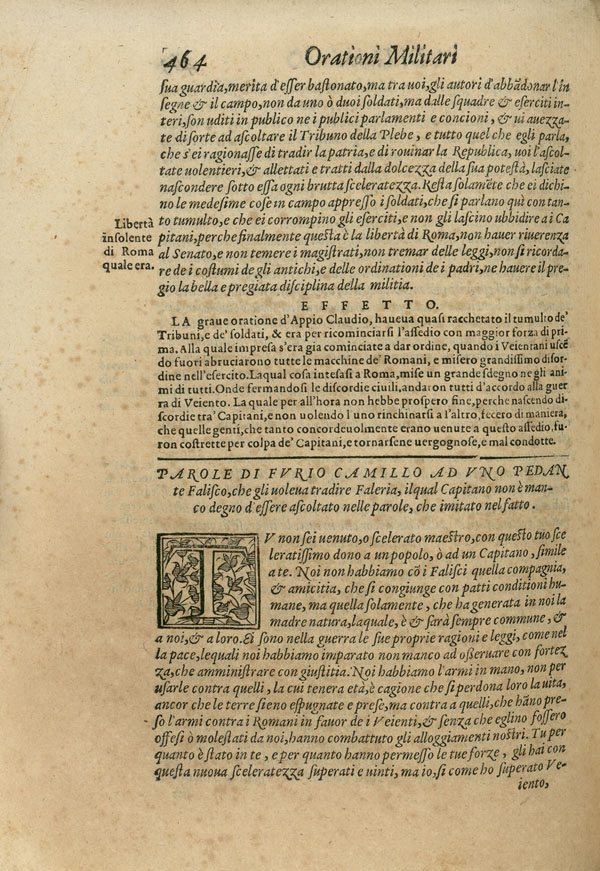 464 Orationi Militari
sua guardia, merita d'esser bastonato, ma tra uoi, gli autori d'abbādonar l'in
segne & il campo, non da uno ò duoi soldati, ma dalle squadre & eserciti in-
teri, son uditi in publico ne i publici parlamenti e concioni, & ui auezza-
te di sorte ad ascoltare il Tribuno della Plebe, e tutto quel che egli parla,
che s'ei ragionasse di tradir la patria, e di rouinar la Republica, uoi l'ascol-
tate uolentieri, & allettati e tratti dalla dolcezza della sua potestà, lasciate
nascondere sotto essa ogni brutta sceleratezza. Resta solamēte che ei dichi-
no le medesime cose in campo appresso i soldati, che si parlano quì con tan-
to tumulto, e che ei corrompino gli eserciti, e non gli lascino ubbidire a i Ca
pitani, perche finalmente questa è la libertà di Roma, non hauer riuerenza
al Senato, e non temere i magistrati, non tremar delle leggi, non si ricorda-
re de i costumi de gli antichi, e delle ordinationi de i padri, ne hauere il pre-
gio la bella e pregiata disciplina della militia.
Libertà
insolente
di Roma
quale era.
EFFETTO.
LA graue oratione d'Appio Claudio, haueua quasi racchetato il tumulto de'
Tribuni, e de' soldati, & era per ricominciarsi l'assedio con maggior forza di pri-
ma. Alla quale impresa s'era gia cominciate a dar ordine, quando i Veientani uscē
do fuori abruciarono tutte le macchine de' Romani, e misero grandissimo disor-
dine nell'esercito. La qual cosa intesasi a Roma, mise un grande sdegno ne gli ani-
mi di tutti. Onde fermandosi le discordie ciuili, andaron tutti d'accordo alla guer
ra di Veiento. La quale per all'hora non hebbe prospero fine, perche nascendo di-
scordie tra' Capitani, e non uolendo l uno rinchinarsi a l'altro, fecero di maniera,
che quelle genti, che tanto concordeuolmente erano uenute a questo assedio, fu-
ron costrette per colpa de' Capitani, e tornarsene uergognose, e mal condotte.
PAROLE DI FVRIO CAMILLO AD VNO PEDAN
te Falisco, che gli uoleua tradire Faleria, il qual Capitano non è man-
co degno d'essere ascoltato nelle parole, che imitato nel fatto.
TV non sei uenuto, o scelerato maestro, con questo tuo sce
leratissimo dono a un popolo, ò ad un Capitano, simile
a te. Noi non habbiamo cō i Falisci quella compagnia,
& amicitia, che si congiunge con patti conditioni hu-
mane, ma quella solamente, che ha generata in noi la
madre natura, laquale, è & sarà sempre commune, &
a noi, & a loro. Ei sono nella guerra le sue proprie ragioni e leggi, come nel
la pace, lequali noi habbiamo imparato non manco ad osseruare con fortez
za, che amministrare con giustitia. Noi habbiamo l'armi in mano, non per
usarle contra quelli, la cui tenera età, è cagione che si perdona loro la uita,
ancor che le terre sieno espugnate e prese, ma contra a quelli, che hāno pre-
so l'armi contra i Romani in fauor de i Veienti, & senza che eglino fossero
offesi ò molestati da noi, hanno combattuto gli alloggiamenti nostri. Tu per
quanto è stato in te, e per quanto hanno permesso le tue forze, gli hai con
questa nuoua sceleratezza superati e uinti, ma io, si come ho superato Ve-
iento,